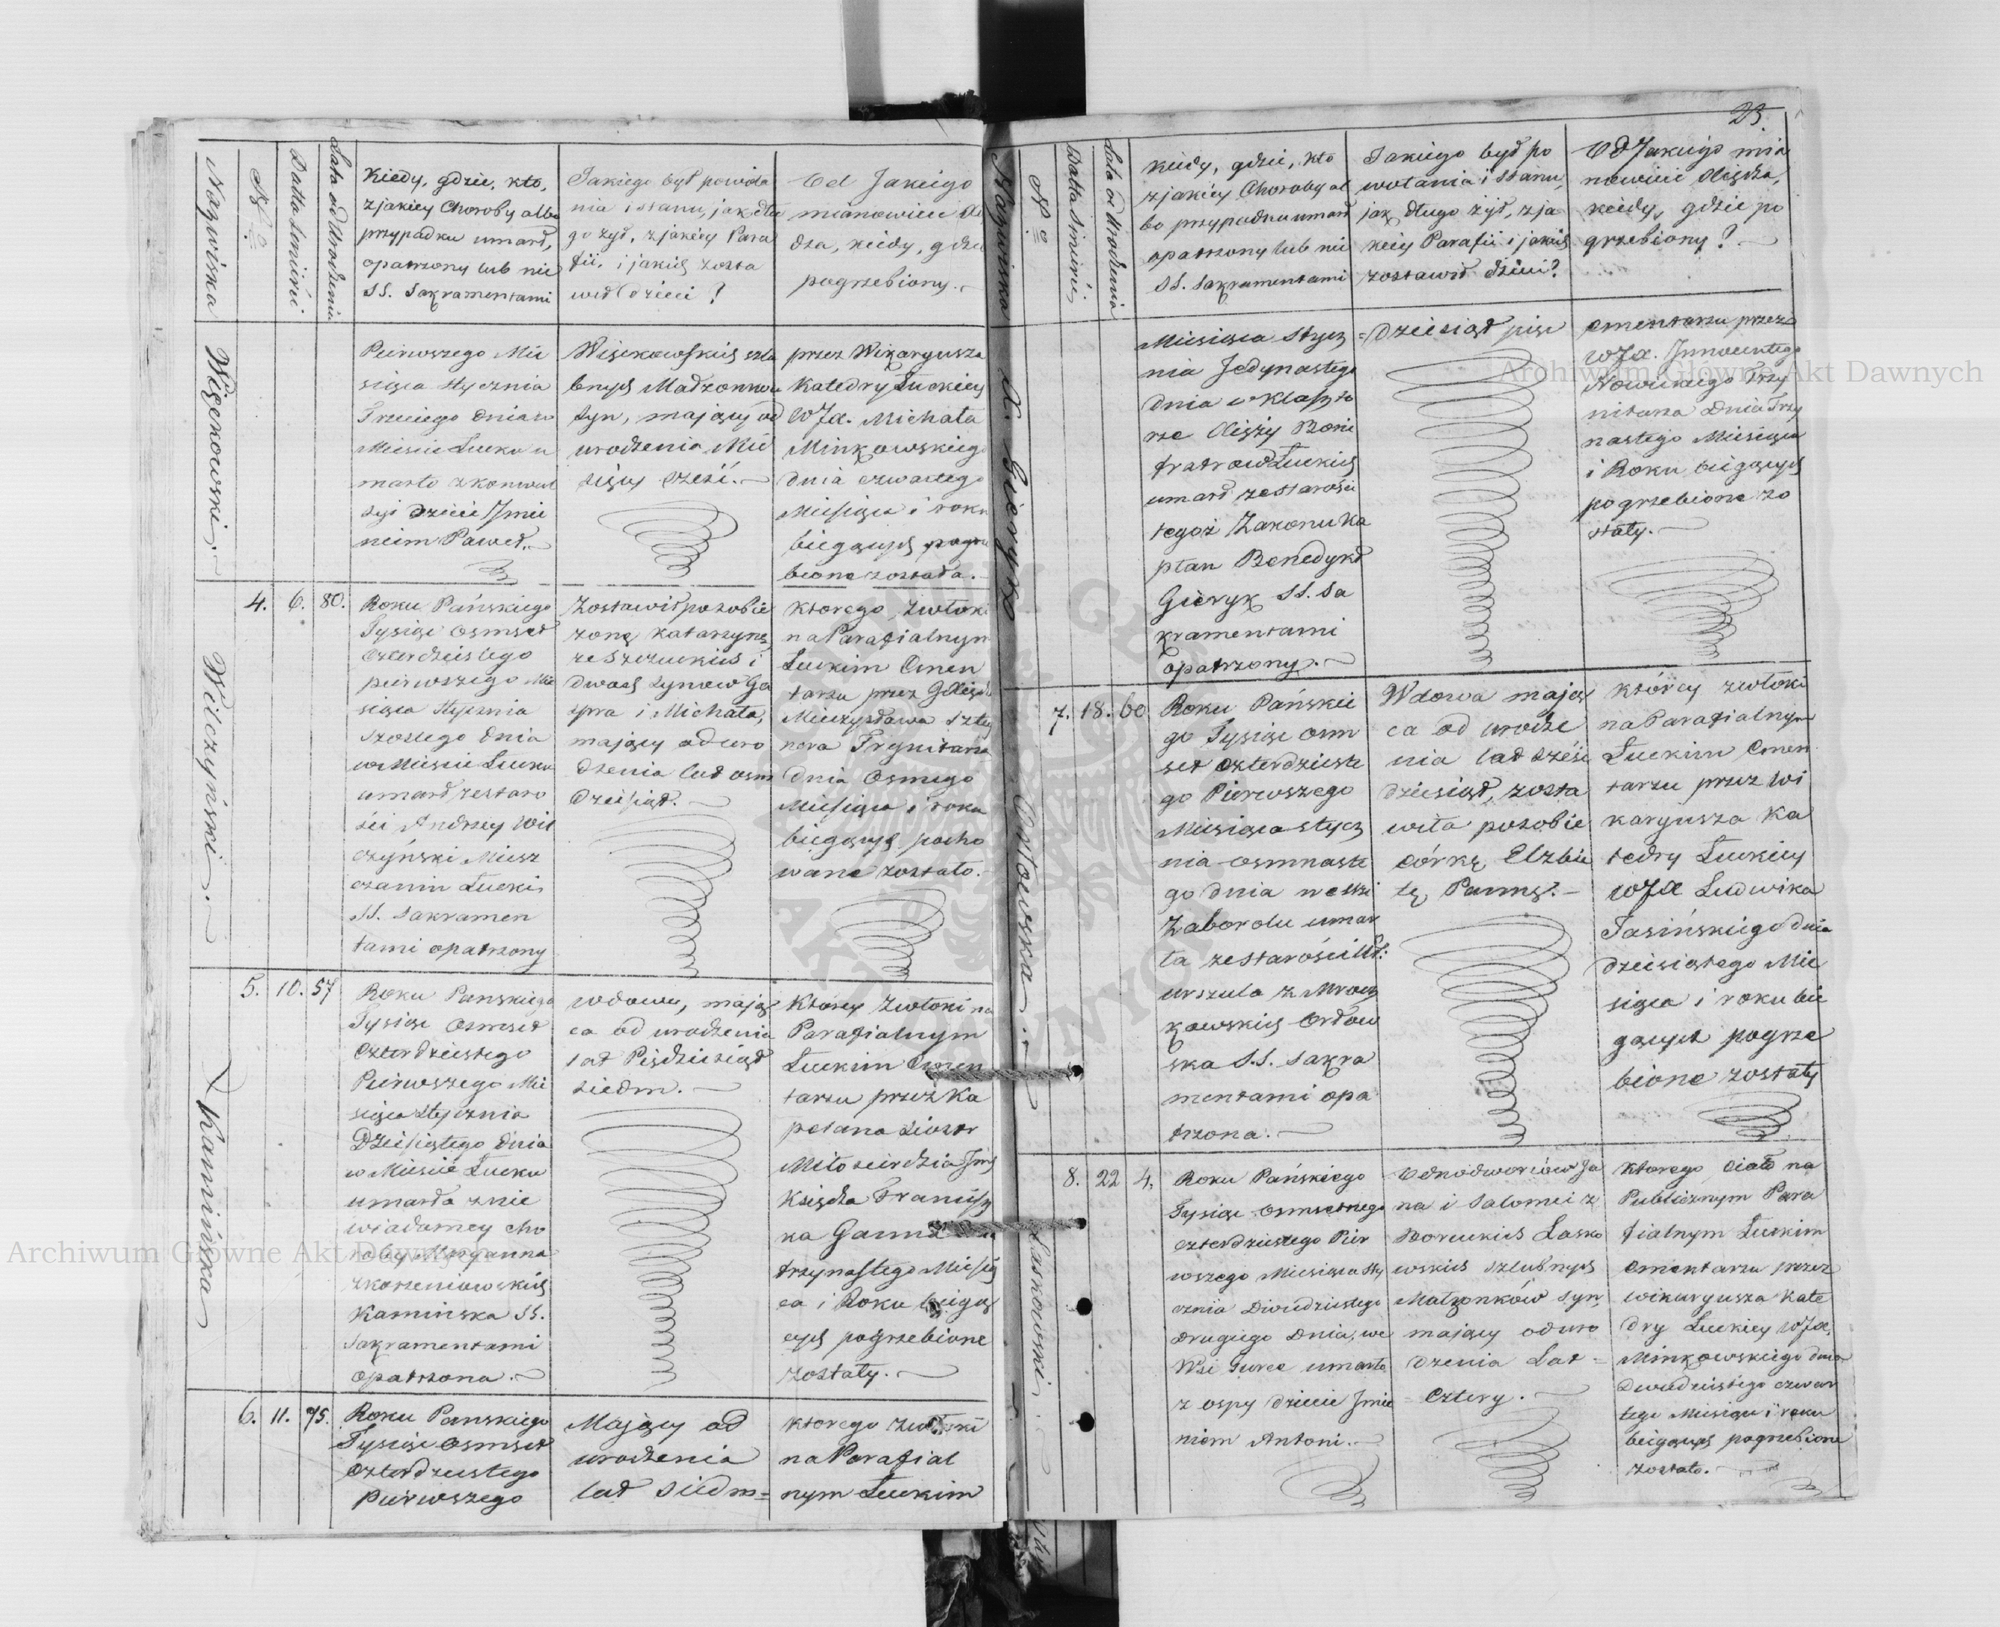 Nazwiska
N<u>o</u>
Datta śmierci
Lata od Urodzenia
Kiedy, gdzie, kto,
z jakiey Choroby albo
przypadku umarł,
opatrzony lub nie
SS. Sakramentami
Jakiego był powoła
nia i stanu, jak dłu
go żył, z jakiey Para
fii, i jakich zosta
wił dzieci?
Od Jakiego
mianowicie Xię
dza, kiedy, gdzie
pogrzebiony.
Więckowski.
Pierwszego Mie
siąca stycznia
Trzeciego dnia w
Mieście Łucku u
marło z konwul
syi Dziecie Jmie
niem Paweł.
Więckowskich szlu
bnych Małżonków
syn, mający od
urodzenia Mie
sięcy sześć.
przez Wikaryusza
Katedry Łuckiey
WJX. Michała
Minkowskiego
dnia czwartego
Miesiąca i roku
bieżących pogrze
bione została.
Wilczyński.
4. 6. 80.
Roku Pańskiego
Tysiąc Osmset
Czterdziestego
pierwszego Mie
siąca stycznia
szostego dnia
w Mieście Łucku
umarł ze staro
ści Andrzey Wil
czyński Miesz
czanin Łucki
SS. Sakramen
tami opatrzony
Zostawił po sobie
żonę Katarzynę
ze Szczuckich i
dwoch synow Ga
spra i Michała,
mający od uro
dzenia lat osm
dziesiąt.
Ktorego zwłoki
na Parafialnym
Łuckim Cmen
tarzu przez Xiędza
Mieczysława Szty
nera Trynitarza
dnia Osmego
Miesiąca i roku
bieżących pocho
wane zostało.
Kamińska
5. 10. 57
Roku Pańskiego
Tysiąc Osmset
Czterdziestego
Pierwszego Mie
siąca stycznia
Dziesiątego dnia
w Mieście Łucku
umarła z nie
wiadomey cho
roby Maryanna
z Korzeniowskich
Kamińska SS.
Sakramentami
opatrzona.
wdowa, mają
ca od urodzenia
lat Pięćdziesiąt
siedm.
Ktorey Zwłoki na
Parafialnym
Łuckim Cmen
tarzu przez Ka
pelana Siostr
Miłosierdzia
Xiędza Francisz
ka
trzynastego Miesią
ca i Roku bieżą
cych pogrzebione
zostały.
6. 11. 75.
Roku Pańskiego
Tysiąc Osmset
Czterdziestego
pierwszego
Mający od
urodzenia
lat siedm=
ktorego zwłoki
na Parafial
nym Łuckim
23
Nazwiska
N<u>o</u>
Datta śmierci
Lata od Urodzenia
Kiedy, gdzie, kto
z jakiey Choroby al
bo przypadku umarł
opatrzony lub nie
SS. Sakramentami
Jakiego był po
wołania i stanu,
jak długo żył, z ja
kiey Parafii i jakich
zostawił dzieci?
Od Jakiego mia
nowicie Xiędza,
kiedy, gdzie po
grzebiony?
X. Gieryk
Miesiąca Stycz
nia Jedynastego
dnia w Klaszto
rze Xięży Boni
fratrow Łuckich
umarł ze starości
tegoż Zakonu Ka
płan Benedykt
Gieryk SS. Sa
kramentami
opatrzony.
=dziesiąt pięć
Cmentarzu przez
WJX. Jnnocentego
Nowickiego Try
nitarza dnia Trzy
nastego Miesiąca
i Roku bieżących
pogrzebione zo
stały.
Orłowska.
7. 18. 60
Roku Pańskie
go Tysiąc Osm
set Czterdzieste
go Pierwszego
Miesiąca stycz
nia osmnaste
go dnia we Wsi
Zaborolu umar
ła ze starości
Urszula z Mrocz
kowskich Orłow
ska SS. Sakra
mentami opa
trzona.
Wdowa mają
ca od urodze
nia lat sześć
dziesiąt, zosta
wiła po sobie
córkę Elzbie
tę Pannę.
którey zwłoki
na Parafialnym
Łuckim Cmen
tarzu przez Wi
karyusza Ka
tedry Łuckiey
WJX Ludwika
Jasińskiego dnia
dziesiątego Mie
siąca i roku bie
żących pogrze
bione zostały
Laskowski
8. 22 4.
Roku Pańskiego
Tysiąc Osmsetnego
czterdziestego Pier
wszego Miesiąca Sty
cznia Dwudziestego
drugiego Dnia, we
Wsi Gurce umarło
z ospy dziecie Jmie
niem Antoni.
Odnodworców Ja
na i Salomei z
Boreckich Lasko
wskich szlubnych
Małżonków syn,
mający od uro
dzenia Lat =
Cztery.
Ktorego ciało na
Publicznym Para
fialnym Łuckim
Cmentarzu przez
wikaryusza Kate
dry Łuckiey WJX.
Minkowskiego dnia
Dwudziestego czwar
tego Miesiąca i roku
bieżących pogrzebione
zostało.
Archiwum Główne Akt Dawnych
Archiwum Główne Akt Dawnych